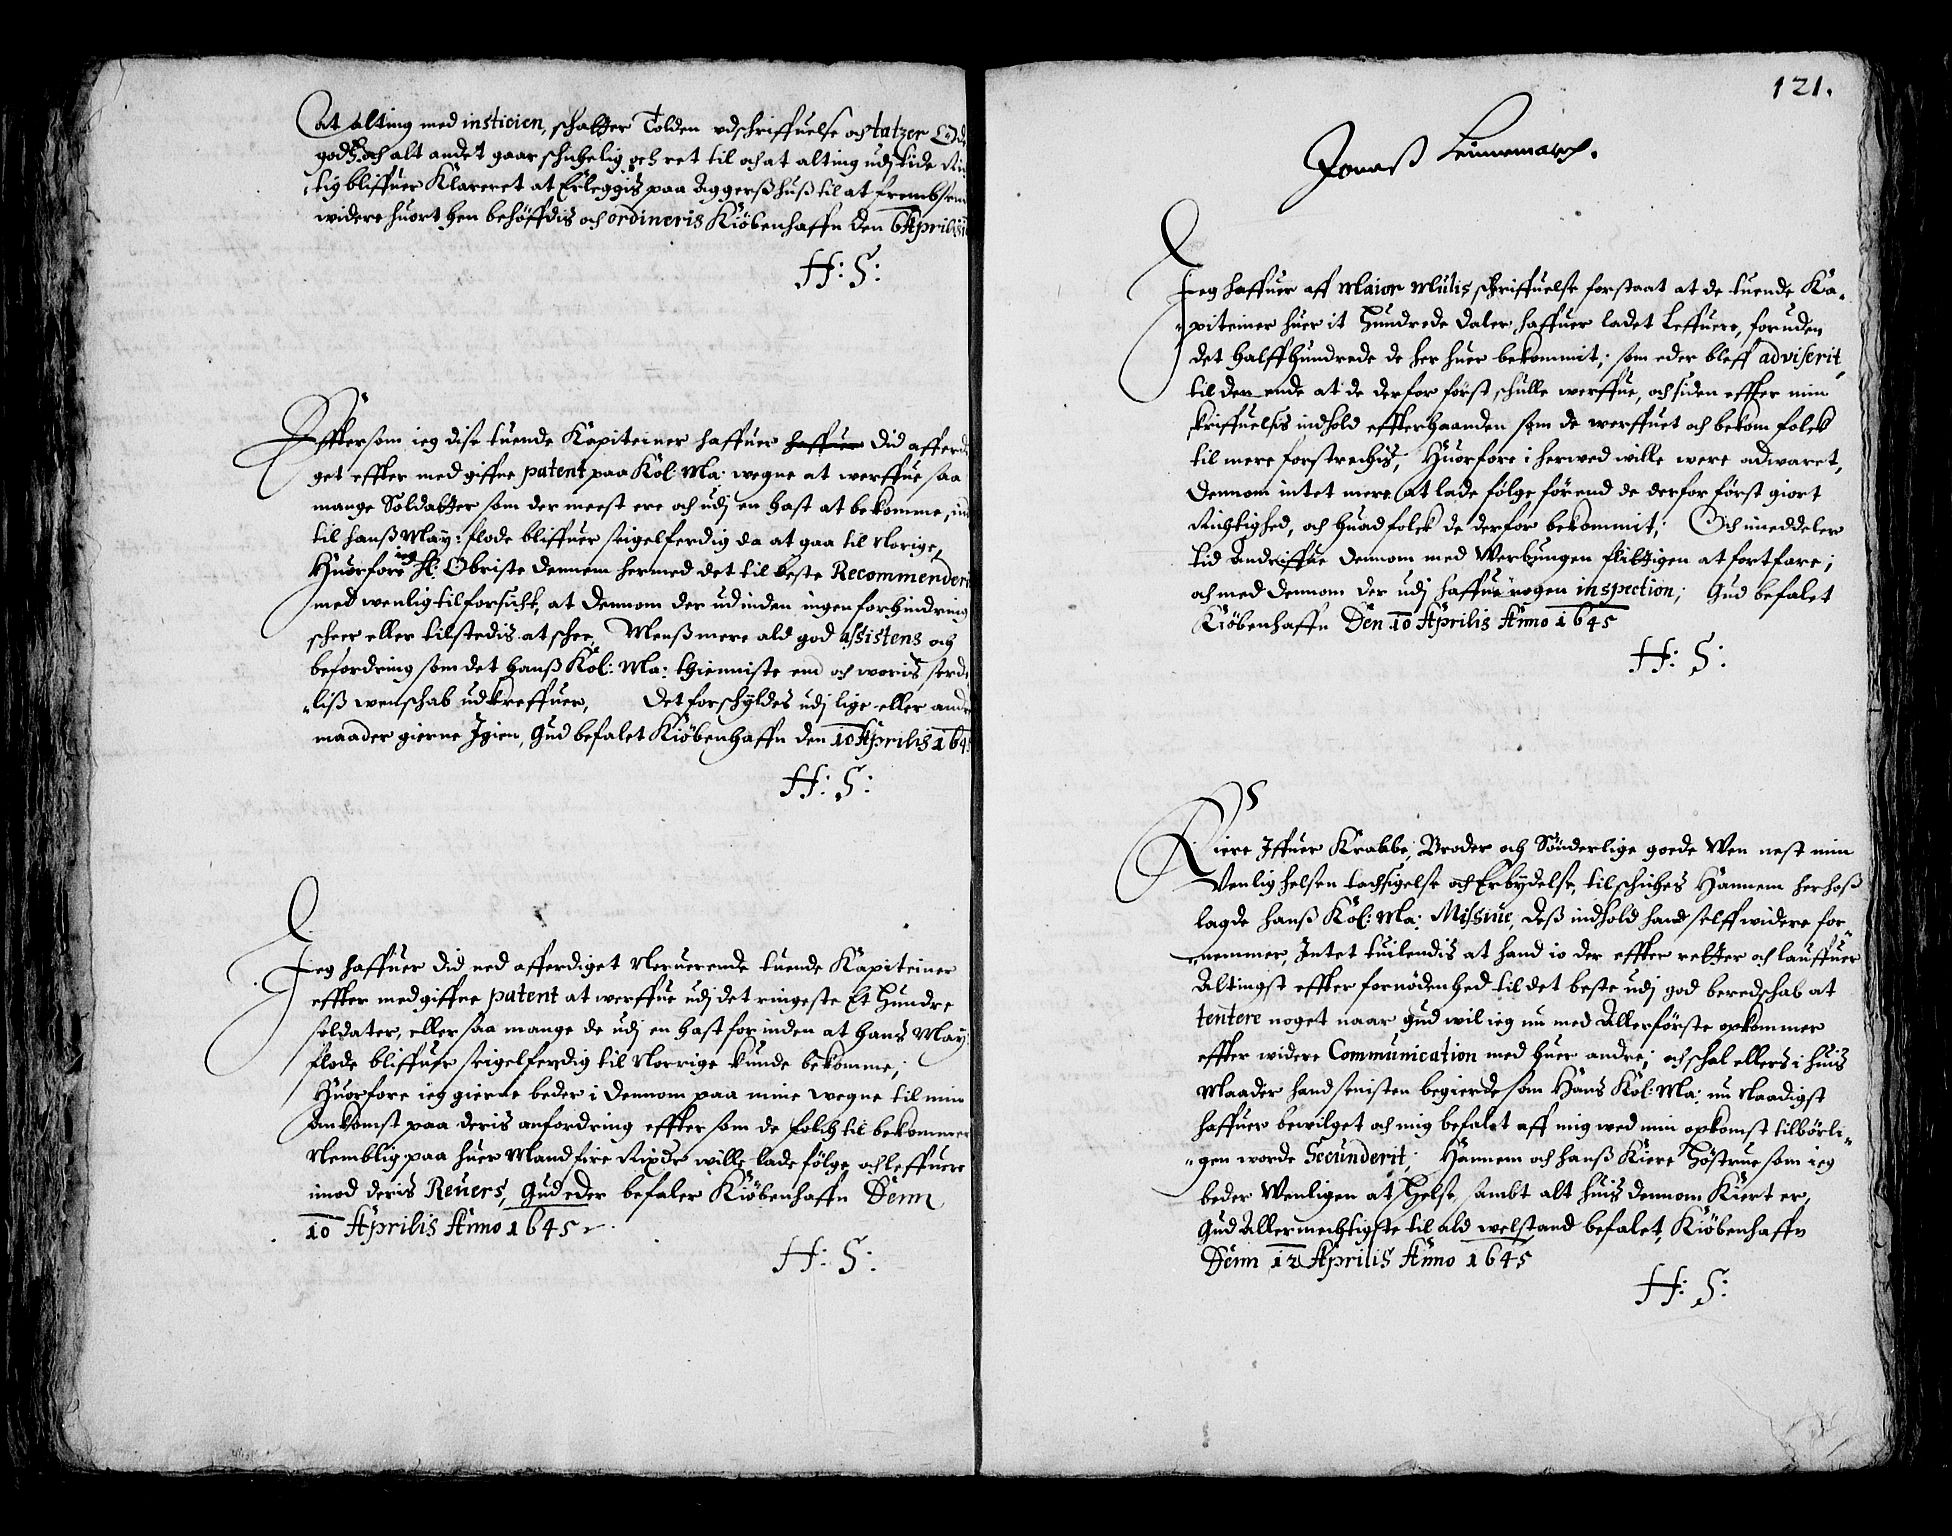 at alting med insticien, schatter Tolden vdschriffuelse och tatzer Od
godß och alt andet gaar schichelig och ret til och at alting udj tide Ri
tig bliffuer Klareret at Erleggis paa Aggerßhuß til at frembsen
widere huort hen behöffdis och ordineris Kiöbenhaffn den 6 Aprilis
H: S:
Effter som ieg dise tuende Kapiteiner haffuer haffuer did afferdi
get effter med giffne patent paa Köl: Ma: wegne at werffue saa
mange Soldatter som der meest ere och udj en hast at bekomme, ind
til hanß May: flode bliffuer seigelferdig da at gaa til Norige,
Huorfore ieg H: Obriste dennem hermed det til beste Recommenderi
med wenlig tilforsicht, at dennom der ud inden ingen forhindring
scheer eller tilstedis at schee, Menß mere ald god assistens och
befordring som det hanß Köl: Ma: thienniste end och woris serde
liß wenschab udtreffuer, Det forschyldes udj lige eller andre
maader gierne Igien, Gud befalet Kiöbenhaffn den 10 Aprilis 164
H: S:
Jeg haffuer did ned afferdiget Neruerende tuende Kapiteiner
effter med giffne patent at werffue udj det ringeste Et Hundre
soldater, eller saa mange de udj en hast for inden at hans May:
flode bliffuer seigelferdig til Norrige kunde bekomme;
Huorfore ieg gierne beder i dennom paa mine wegne til min
ankomst paa deris anfordring effter som de folch til bekommer
Nemblig paa huer Mand fire Rixdr wille lade følge och leffuere
imod deris Reuers, Gud eder befaler Kiöbenhaffn Denn
10 Aprilis Anno 1645
H: S:
121.
Jonaß Leinnemarch.
Jeg haffuer aff Maior Mutis schriffuelse forstaat at de tuende Ka-
piteiner huer it Hundrede daler haffuer ladet Leffuere, foruden
det halff hundrede de her huer bekommit; som eder bleff adviserit,
til den ende at de derfor först schulle werffue, och siden effter min
skriffuelsis indhold effterhaanden som de werffuet och bekom folck
til mere forstrechis, Huorfore i herwed wille were adwaret,
dennom intet mere at lade följe förend de derfor först giort
Richtighed, och huad folck de derfor bekommit; Och imeddeler
tid andriffue dennom med Werbungen flittigen at fortfare;
och med dennom der udj haffue nogen inspection; Gud befalet
Kiöbenhaffn Den 10 Aprilis Anno 1645
H: S:
Kiere Iffuer Krabbe, Broder och Sönderlige goede Wen nest min
Venlig helsen tachsigelse och Erbydelse, tilschiches Hannem herhoß
lagde hanß Köl: Ma: Missive, deß indhold hand selff widere for-
nemmer, Intet tuilendis at hand io der effter retter och lauffuer
Altingst effter fornödenhed til det beste udj god beredschab at
tentere noget naar gud wil ieg nu med Allerförste opkommer
effter widere Communication med huer andre; och schal ellers i huis
Maader hand senisten begierde som Hans Köl: Ma: nu Naadigst
haffuer bewilget och mig befalet aff mig wed min opkomst tilbörli-
gen worde Secunderit; Hannem och hanß Kiere Höstrue som ieg
beder Wenligen at Helse, sambt alt huis dennom Kiert er,
Gud Allermechtigste til ald welstand befalet, Kiöbenhaffn
Denn 12 Aprilis Anno 1645
H: S: